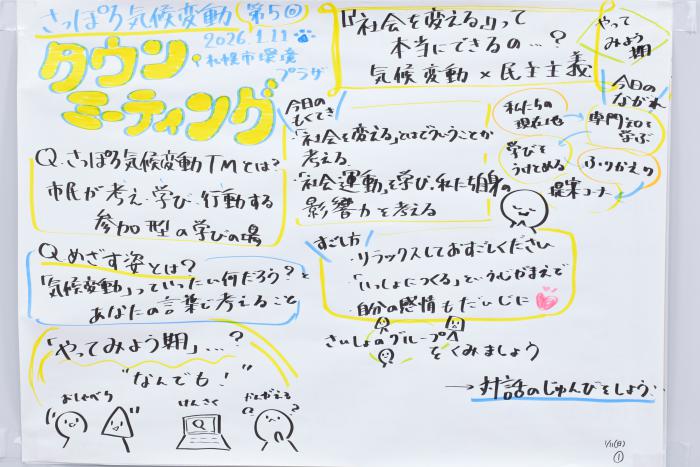 さっぽろ気候変動(第5回)
2026.1.11
@札幌市環境
プラザ
タウン
ミーティング
『「社会を変える」』って
本当にできるの…?
気候変動×民主主義
やって
みよう
期
Q.さっぽろ気候変動TMとは?
市民が考え・学び・行動する
参加型の学びの場
Q.めざす姿とは?
「気候変動」っていったい何だろう?と
あなたの言葉で考えること
「やってみよう期」…?
"なんでも!"
おしゃべり
けんさく
かんがえる
Q
今日の
もくてき
・「社会を変える」とはどういうことか
考える
・「社会運動」を学び、私たち自身の
影響力を考える
今日の
ながれ
私たちの
現在地
専門知を
学ぶ
学びを
うけとめる
ふりかえり
提案コーナー
すごし方
・リラックスしておすごしください
・「いっしょにつくる」という心がまえで
・自分の感情もだいじに
さいしょのグループ
をくみましょう
→対話のじゅんびをしよう…
1/11(日)
①